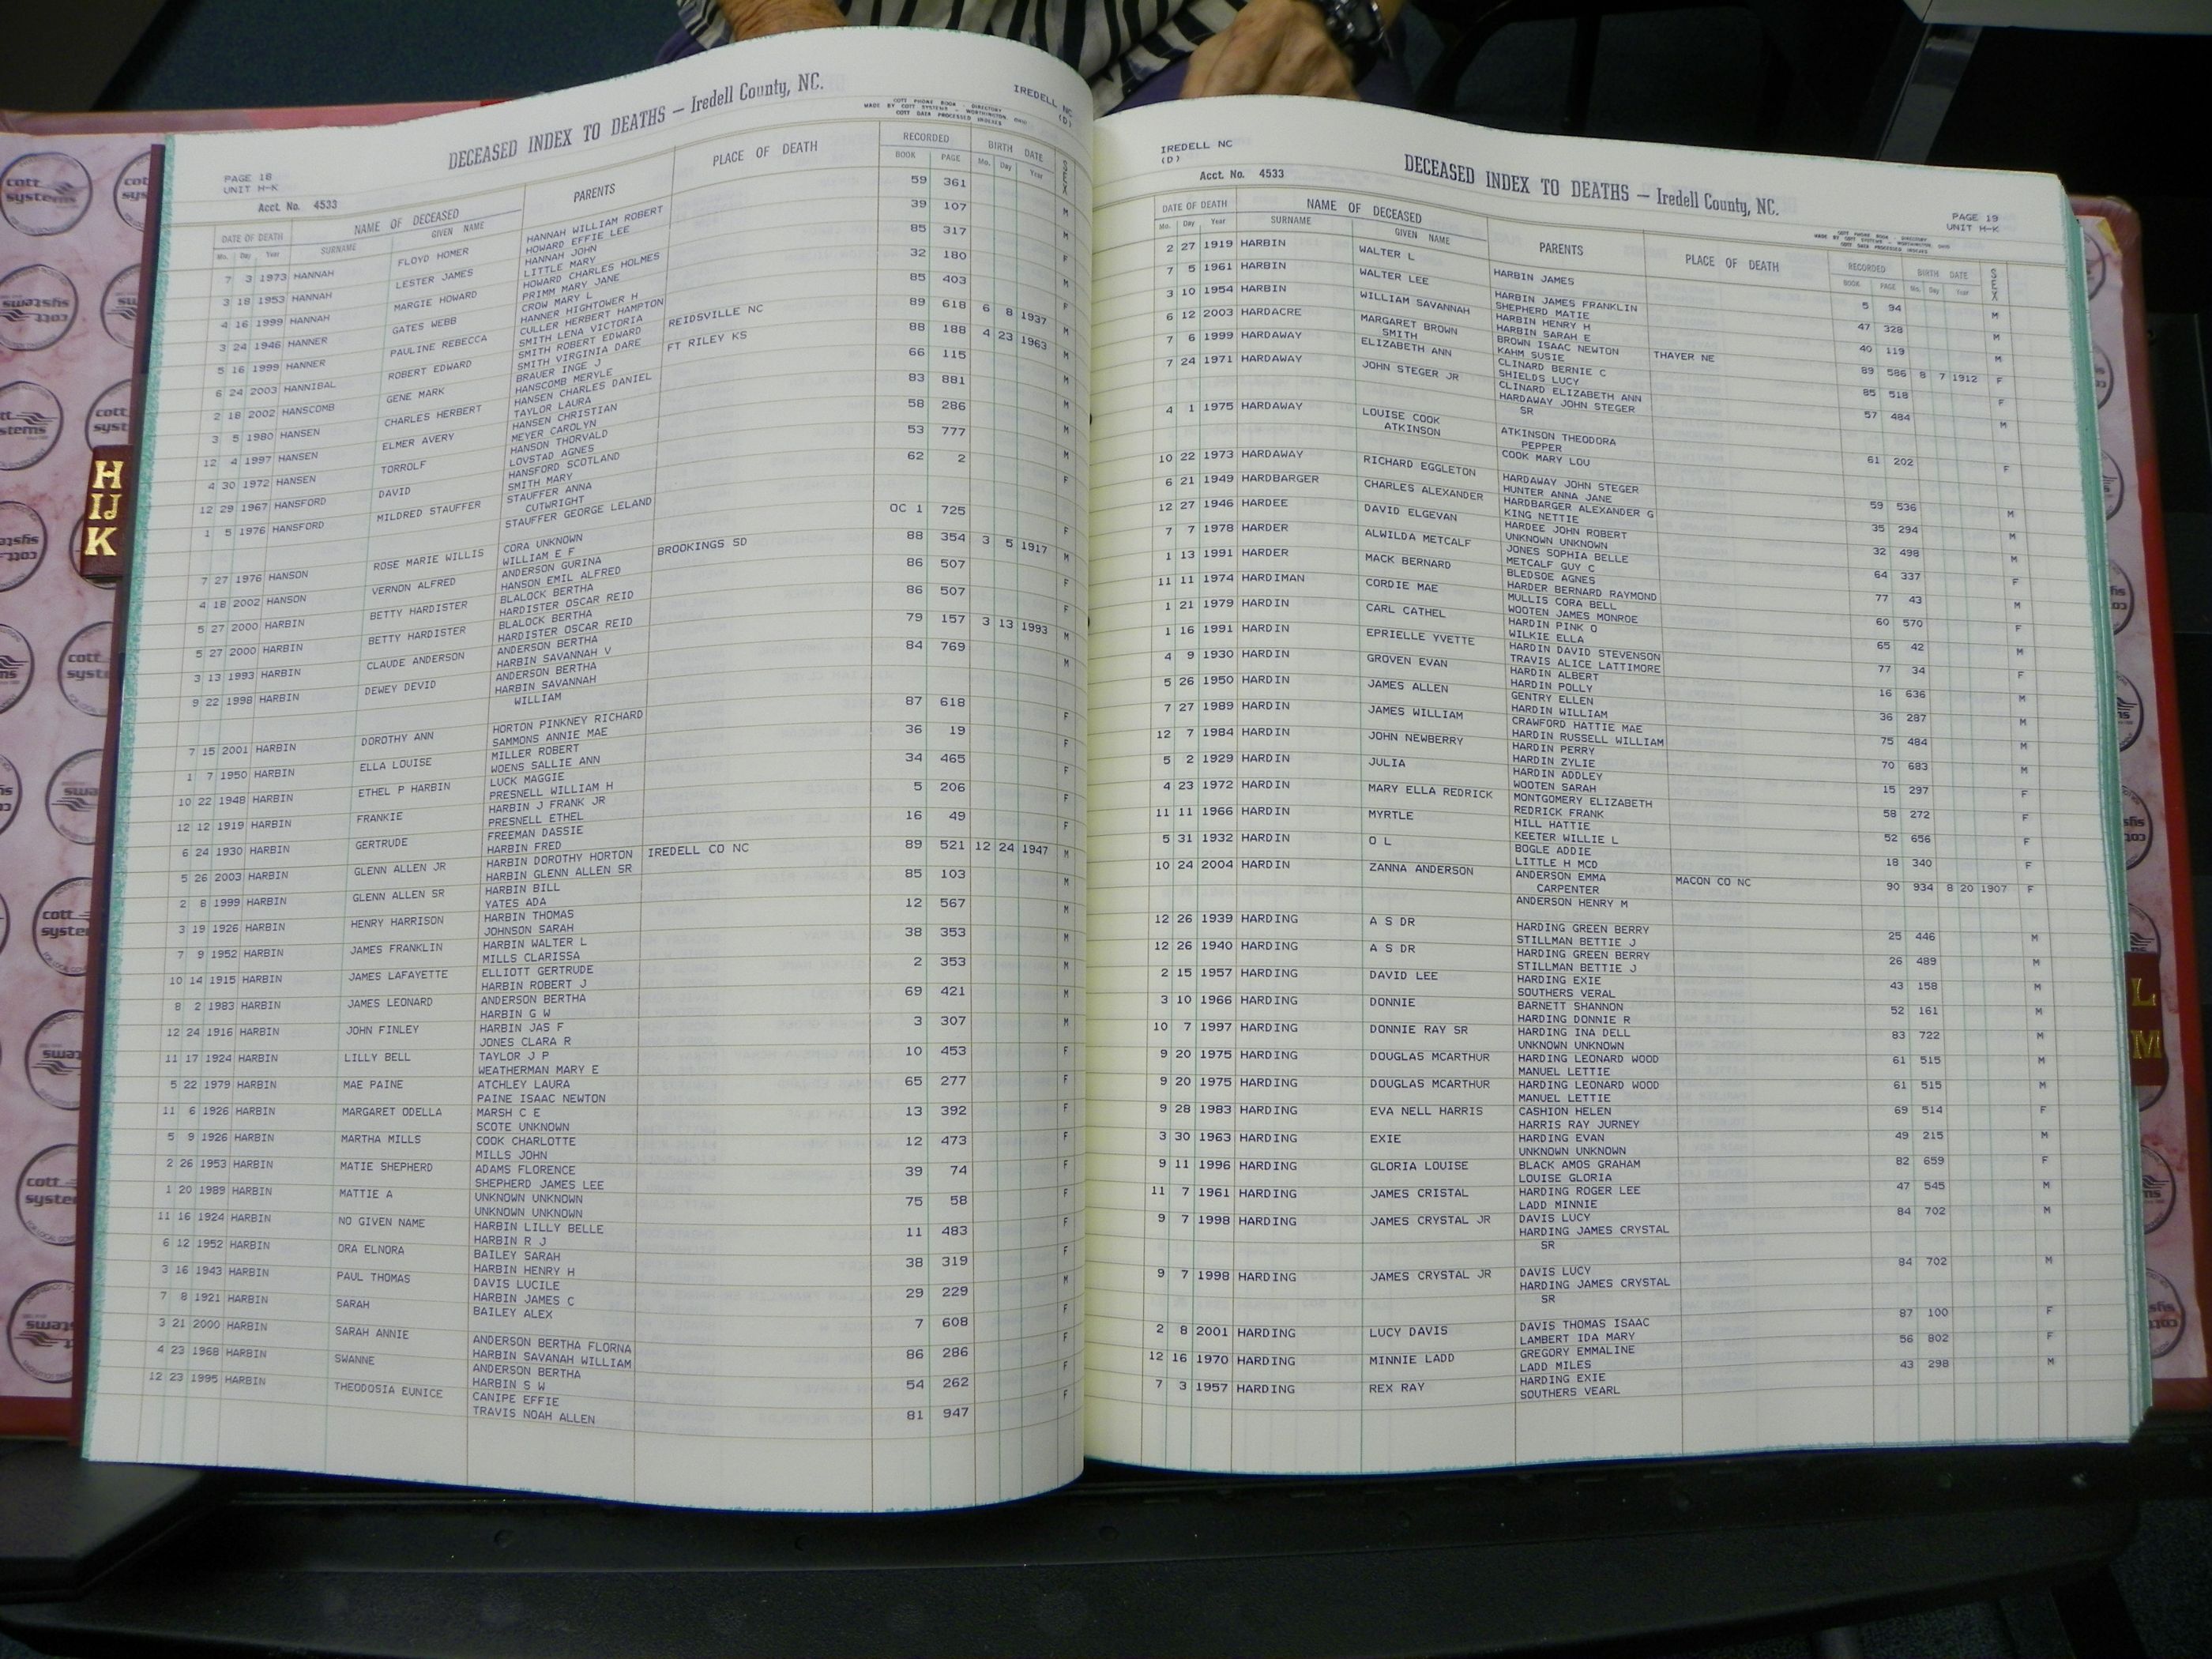 DECEASED INDEX TO DEATHS — Iredell County, NC.
IREDELL NC
(D)
COTT PHONE BOOK - DIRECTORY
MADE BY COTT SYSTEMS - WORTHINGTON, OHIO
COTT DATA PROCESSED INDEXES
PAGE 18
UNIT H-K
Acct. No. 4533
DATE OF DEATH NAME OF DECEASED PARENTS PLACE OF DEATH RECORDED BIRTH DATE SEX
Mo. Day Year SURNAME GIVEN NAME BOOK PAGE Mo. Day Year
7 3 1973 HANNAH FLOYD HOMER HANNAH WILLIAM ROBERT 59 361 M
HOWARD EFFIE LEE
3 18 1953 HANNAH LESTER JAMES HANNAH JOHN 39 107 M
LITTLE MARY
4 16 1999 HANNAH MARGIE HOWARD HOWARD CHARLES HOLMES 85 317 F
PRIMM MARY JANE
3 24 1946 HANNER GATES WEBB CROW MARY L 32 180
HANNER HIGHTOWER H
5 16 1999 HANNER PAULINE REBECCA CULLER HERBERT HAMPTON 85 403 F
SMITH LENA VICTORIA
6 24 2003 HANNIBAL ROBERT EDWARD SMITH ROBERT EDWARD REIDSVILLE NC 89 618 6 8 1937 M
SMITH VIRGINIA DARE
2 18 2002 HANSCOMB GENE MARK BRAUER INGE J FT RILEY KS 88 188 4 23 1963 M
HANSCOMB MERYLE
3 5 1980 HANSEN CHARLES HERBERT HANSEN CHARLES DANIEL 66 115 M
TAYLOR LAURA
12 4 1997 HANSEN ELMER AVERY HANSEN CHRISTIAN 83 881 M
MEYER CAROLYN
4 30 1972 HANSEN TORROLF HANSON THORVALD 58 286 M
LOVSTAD AGNES
12 29 1967 HANSFORD DAVID HANSFORD SCOTLAND 53 777 M
SMITH MARY
1 5 1976 HANSFORD MILDRED STAUFFER STAUFFER ANNA 62 2 F
CUTWRIGHT
STAUFFER GEORGE LELAND
7 27 1976 HANSON ROSE MARIE WILLIS CORA UNKNOWN OC 1 725 F
WILLIAM E F
4 18 2002 HANSON VERNON ALFRED ANDERSON GURINA BROOKINGS SD 88 354 3 5 1917 M
HANSON EMIL ALFRED
5 27 2000 HARBIN BETTY HARDISTER BLALOCK BERTHA 86 507 F
HARDISTER OSCAR REID
5 27 2000 HARBIN BETTY HARDISTER BLALOCK BERTHA 86 507 F
HARDISTER OSCAR REID
3 13 1993 HARBIN CLAUDE ANDERSON ANDERSON BERTHA 79 157 3 13 1993 M
HARBIN SAVANNAH V
9 22 1998 HARBIN DEWEY DEVID ANDERSON BERTHA 84 769 M
HARBIN SAVANNAH
WILLIAM
7 15 2001 HARBIN DOROTHY ANN HORTON PINKNEY RICHARD 87 618 F
SAMMONS ANNIE MAE
1 7 1950 HARBIN ELLA LOUISE MILLER ROBERT 36 19 F
WOENS SALLIE ANN
10 22 1948 HARBIN ETHEL P HARBIN LUCK MAGGIE 34 465 F
PRESNELL WILLIAM H
12 12 1919 HARBIN FRANKIE HARBIN J FRANK JR 5 206 F
PRESNELL ETHEL
6 24 1930 HARBIN GERTRUDE FREEMAN DASSIE 16 49 F
HARBIN FRED
5 26 2003 HARBIN GLENN ALLEN JR HARBIN DOROTHY HORTON IREDELL CO NC 89 521 12 24 1947 M
HARBIN GLENN ALLEN SR
2 8 1999 HARBIN GLENN ALLEN SR HARBIN BILL 85 103 M
YATES ADA
3 19 1926 HARBIN HENRY HARRISON HARBIN THOMAS 12 567 M
JOHNSON SARAH
7 9 1952 HARBIN JAMES FRANKLIN HARBIN WALTER L 38 353 M
MILLS CLARISSA
10 14 1915 HARBIN JAMES LAFAYETTE ELLIOTT GERTRUDE 2 353 M
HARBIN ROBERT J
8 2 1983 HARBIN JAMES LEONARD ANDERSON BERTHA 69 421 M
HARBIN G W
12 24 1916 HARBIN JOHN FINLEY HARBIN JAS F 3 307 M
JONES CLARA R
11 17 1924 HARBIN LILLY BELL TAYLOR J P 10 453 F
WEATHERMAN MARY E
5 22 1979 HARBIN MAE PAINE ATCHLEY LAURA 65 277 F
PAINE ISAAC NEWTON
11 6 1926 HARBIN MARGARET ODELLA MARSH C E 13 392 F
SCOTE UNKNOWN
5 9 1926 HARBIN MARTHA MILLS COOK CHARLOTTE 12 473 F
MILLS JOHN
2 26 1953 HARBIN MATIE SHEPHERD ADAMS FLORENCE 39 74 F
SHEPHERD JAMES LEE
1 20 1989 HARBIN MATTIE A UNKNOWN UNKNOWN 75 58 F
UNKNOWN UNKNOWN
11 16 1924 HARBIN NO GIVEN NAME HARBIN LILLY BELLE 11 483 F
HARBIN R J
6 12 1952 HARBIN ORA ELNORA BAILEY SARAH 38 319 F
HARBIN HENRY H
3 16 1943 HARBIN PAUL THOMAS DAVIS LUCILE 29 229 M
HARBIN JAMES C
7 8 1921 HARBIN SARAH BAILEY ALEX 7 608 F
3 21 2000 HARBIN SARAH ANNIE ANDERSON BERTHA FLORNA 86 286 F
HARBIN SAVANAH WILLIAM
4 23 1968 HARBIN SWANNE ANDERSON BERTHA 54 262 F
HARBIN S W
12 23 1995 HARBIN THEODOSIA EUNICE CANIPE EFFIE 81 947 F
TRAVIS NOAH ALLEN
IREDELL NC
(D)
Acct. No. 4533
DECEASED INDEX TO DEATHS — Iredell County, NC.
PAGE 19
UNIT H-K
DATE OF DEATH NAME OF DECEASED PARENTS PLACE OF DEATH RECORDED BIRTH DATE SEX
Mo. Day Year SURNAME GIVEN NAME BOOK PAGE Mo. Day Year
2 27 1919 HARBIN WALTER L HARBIN JAMES 5 94 M
7 5 1961 HARBIN WALTER LEE HARBIN JAMES FRANKLIN 47 328 M
SHEPHERD MATIE
3 10 1954 HARBIN WILLIAM SAVANNAH HARBIN HENRY H 40 119 M
HARBIN SARAH E
6 12 2003 HARDACRE MARGARET BROWN BROWN ISAAC NEWTON THAYER NE 89 586 8 7 1912 F
SMITH KAHM SUSIE
7 6 1999 HARDAWAY ELIZABETH ANN CLINARD BERNIE C 85 518 F
SHIELDS LUCY
7 24 1971 HARDAWAY JOHN STEGER JR CLINARD ELIZABETH ANN 57 484 M
HARDAWAY JOHN STEGER
SR
4 1 1975 HARDAWAY LOUISE COOK ATKINSON THEODORA 61 202 F
ATKINSON PEPPER
COOK MARY LOU
10 22 1973 HARDAWAY RICHARD EGGLETON HARDAWAY JOHN STEGER 59 536 M
HUNTER ANNA JANE
6 21 1949 HARDBARGER CHARLES ALEXANDER HARDBARGER ALEXANDER G 35 294 M
KING NETTIE
12 27 1946 HARDEE DAVID ELGEVAN HARDEE JOHN ROBERT 32 498 M
UNKNOWN UNKNOWN
7 7 1978 HARDER ALWILDA METCALF JONES SOPHIA BELLE 64 337 F
METCALF GUY C
1 13 1991 HARDER MACK BERNARD BLEDSOE AGNES 77 43 M
HARDER BERNARD RAYMOND
11 11 1974 HARDIMAN CORDIE MAE MULLIS CORA BELL 60 570 F
WOOTEN JAMES MONROE
1 21 1979 HARDIN CARL CATHEL HARDIN PINK O 65 42 M
WILKIE ELLA
1 16 1991 HARDIN EPRIELLE YVETTE HARDIN DAVID STEVENSON 77 34 F
TRAVIS ALICE LATTIMORE
4 9 1930 HARDIN GROVEN EVAN HARDIN ALBERT 16 636 M
HARDIN POLLY
5 26 1950 HARDIN JAMES ALLEN GENTRY ELLEN 36 287 M
HARDIN WILLIAM
7 27 1989 HARDIN JAMES WILLIAM CRAWFORD HATTIE MAE 75 484 M
HARDIN RUSSELL WILLIAM
12 7 1984 HARDIN JOHN NEWBERRY HARDIN PERRY 70 683 M
HARDIN ZYLIE
5 2 1929 HARDIN JULIA HARDIN ADDLEY 15 297 F
WOOTEN SARAH
4 23 1972 HARDIN MARY ELLA REDRICK MONTGOMERY ELIZABETH 58 272 F
REDRICK FRANK
11 11 1966 HARDIN MYRTLE HILL HATTIE 52 656 F
KEETER WILLIE L
5 31 1932 HARDIN O L BOGLE ADDIE 18 340 F
LITTLE H MCD
10 24 2004 HARDIN ZANNA ANDERSON ANDERSON EMMA MACON CO NC 90 934 8 20 1907 F
CARPENTER
ANDERSON HENRY M
12 26 1939 HARDING A S DR HARDING GREEN BERRY 25 446 M
STILLMAN BETTIE J
12 26 1940 HARDING A S DR HARDING GREEN BERRY 26 489 M
STILLMAN BETTIE J
2 15 1957 HARDING DAVID LEE HARDING EXIE 43 158 M
SOUTHERS VERAL
3 10 1966 HARDING DONNIE BARNETT SHANNON 52 161 M
HARDING DONNIE R
10 7 1997 HARDING DONNIE RAY SR HARDING INA DELL 83 722 M
UNKNOWN UNKNOWN
9 20 1975 HARDING DOUGLAS MCARTHUR HARDING LEONARD WOOD 61 515 M
MANUEL LETTIE
9 20 1975 HARDING DOUGLAS MCARTHUR HARDING LEONARD WOOD 61 515 M
MANUEL LETTIE
9 28 1983 HARDING EVA NELL HARRIS CASHION HELEN 69 514 F
HARRIS RAY JURNEY
3 30 1963 HARDING EXIE HARDING EVAN 49 215 M
UNKNOWN UNKNOWN
9 11 1996 HARDING GLORIA LOUISE BLACK AMOS GRAHAM 82 659 F
LOUISE GLORIA
11 7 1961 HARDING JAMES CRISTAL HARDING ROGER LEE 47 545 M
LADD MINNIE
9 7 1998 HARDING JAMES CRYSTAL JR DAVIS LUCY 84 702 M
HARDING JAMES CRYSTAL
SR
9 7 1998 HARDING JAMES CRYSTAL JR DAVIS LUCY 84 702 M
HARDING JAMES CRYSTAL
SR
2 8 2001 HARDING LUCY DAVIS DAVIS THOMAS ISAAC 87 100 F
LAMBERT IDA MARY
12 16 1970 HARDING MINNIE LADD GREGORY EMMALINE 56 802 F
LADD MILES
7 3 1957 HARDING REX RAY HARDING EXIE 43 298 M
SOUTHERS VEARL
H
IJ
K
L
M
cott
systems